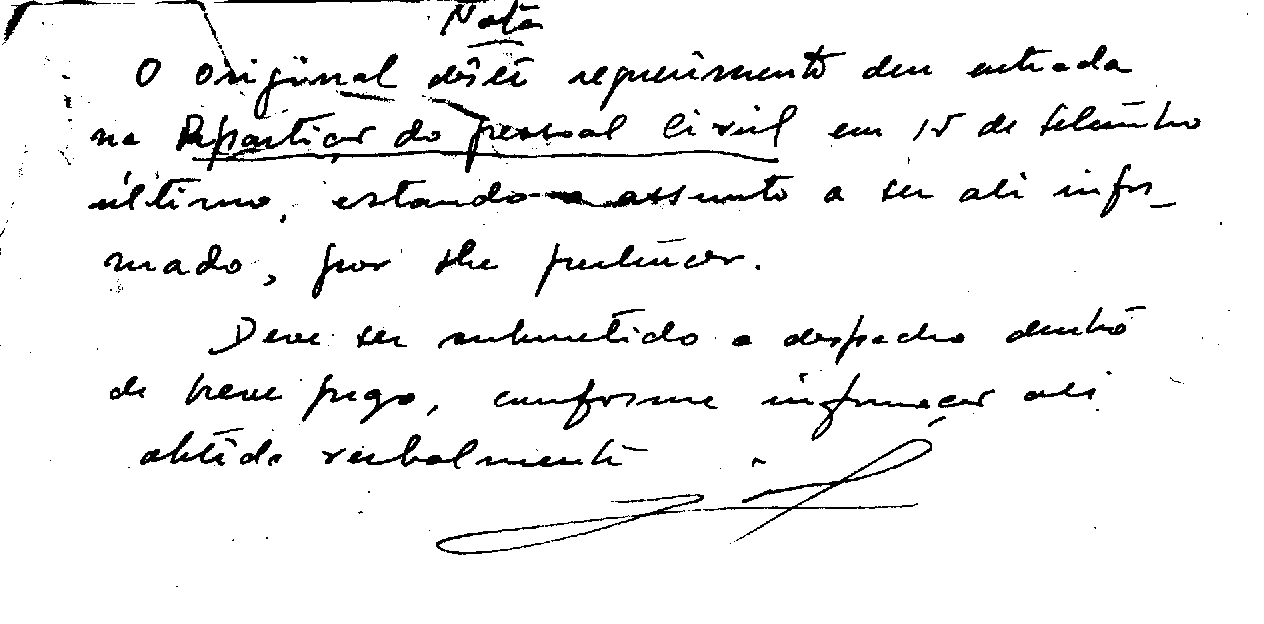 Nota
O original dêste requerimento deu entrada
na Repartição do pessoal Civil em 15 de Setembro
último, estando o assunto a ser ali infor_
mado, por lhe pertencer.
Deve ser submetido a despacho dentro
de breve prazo, conforme informação ali
obtida verbalmente